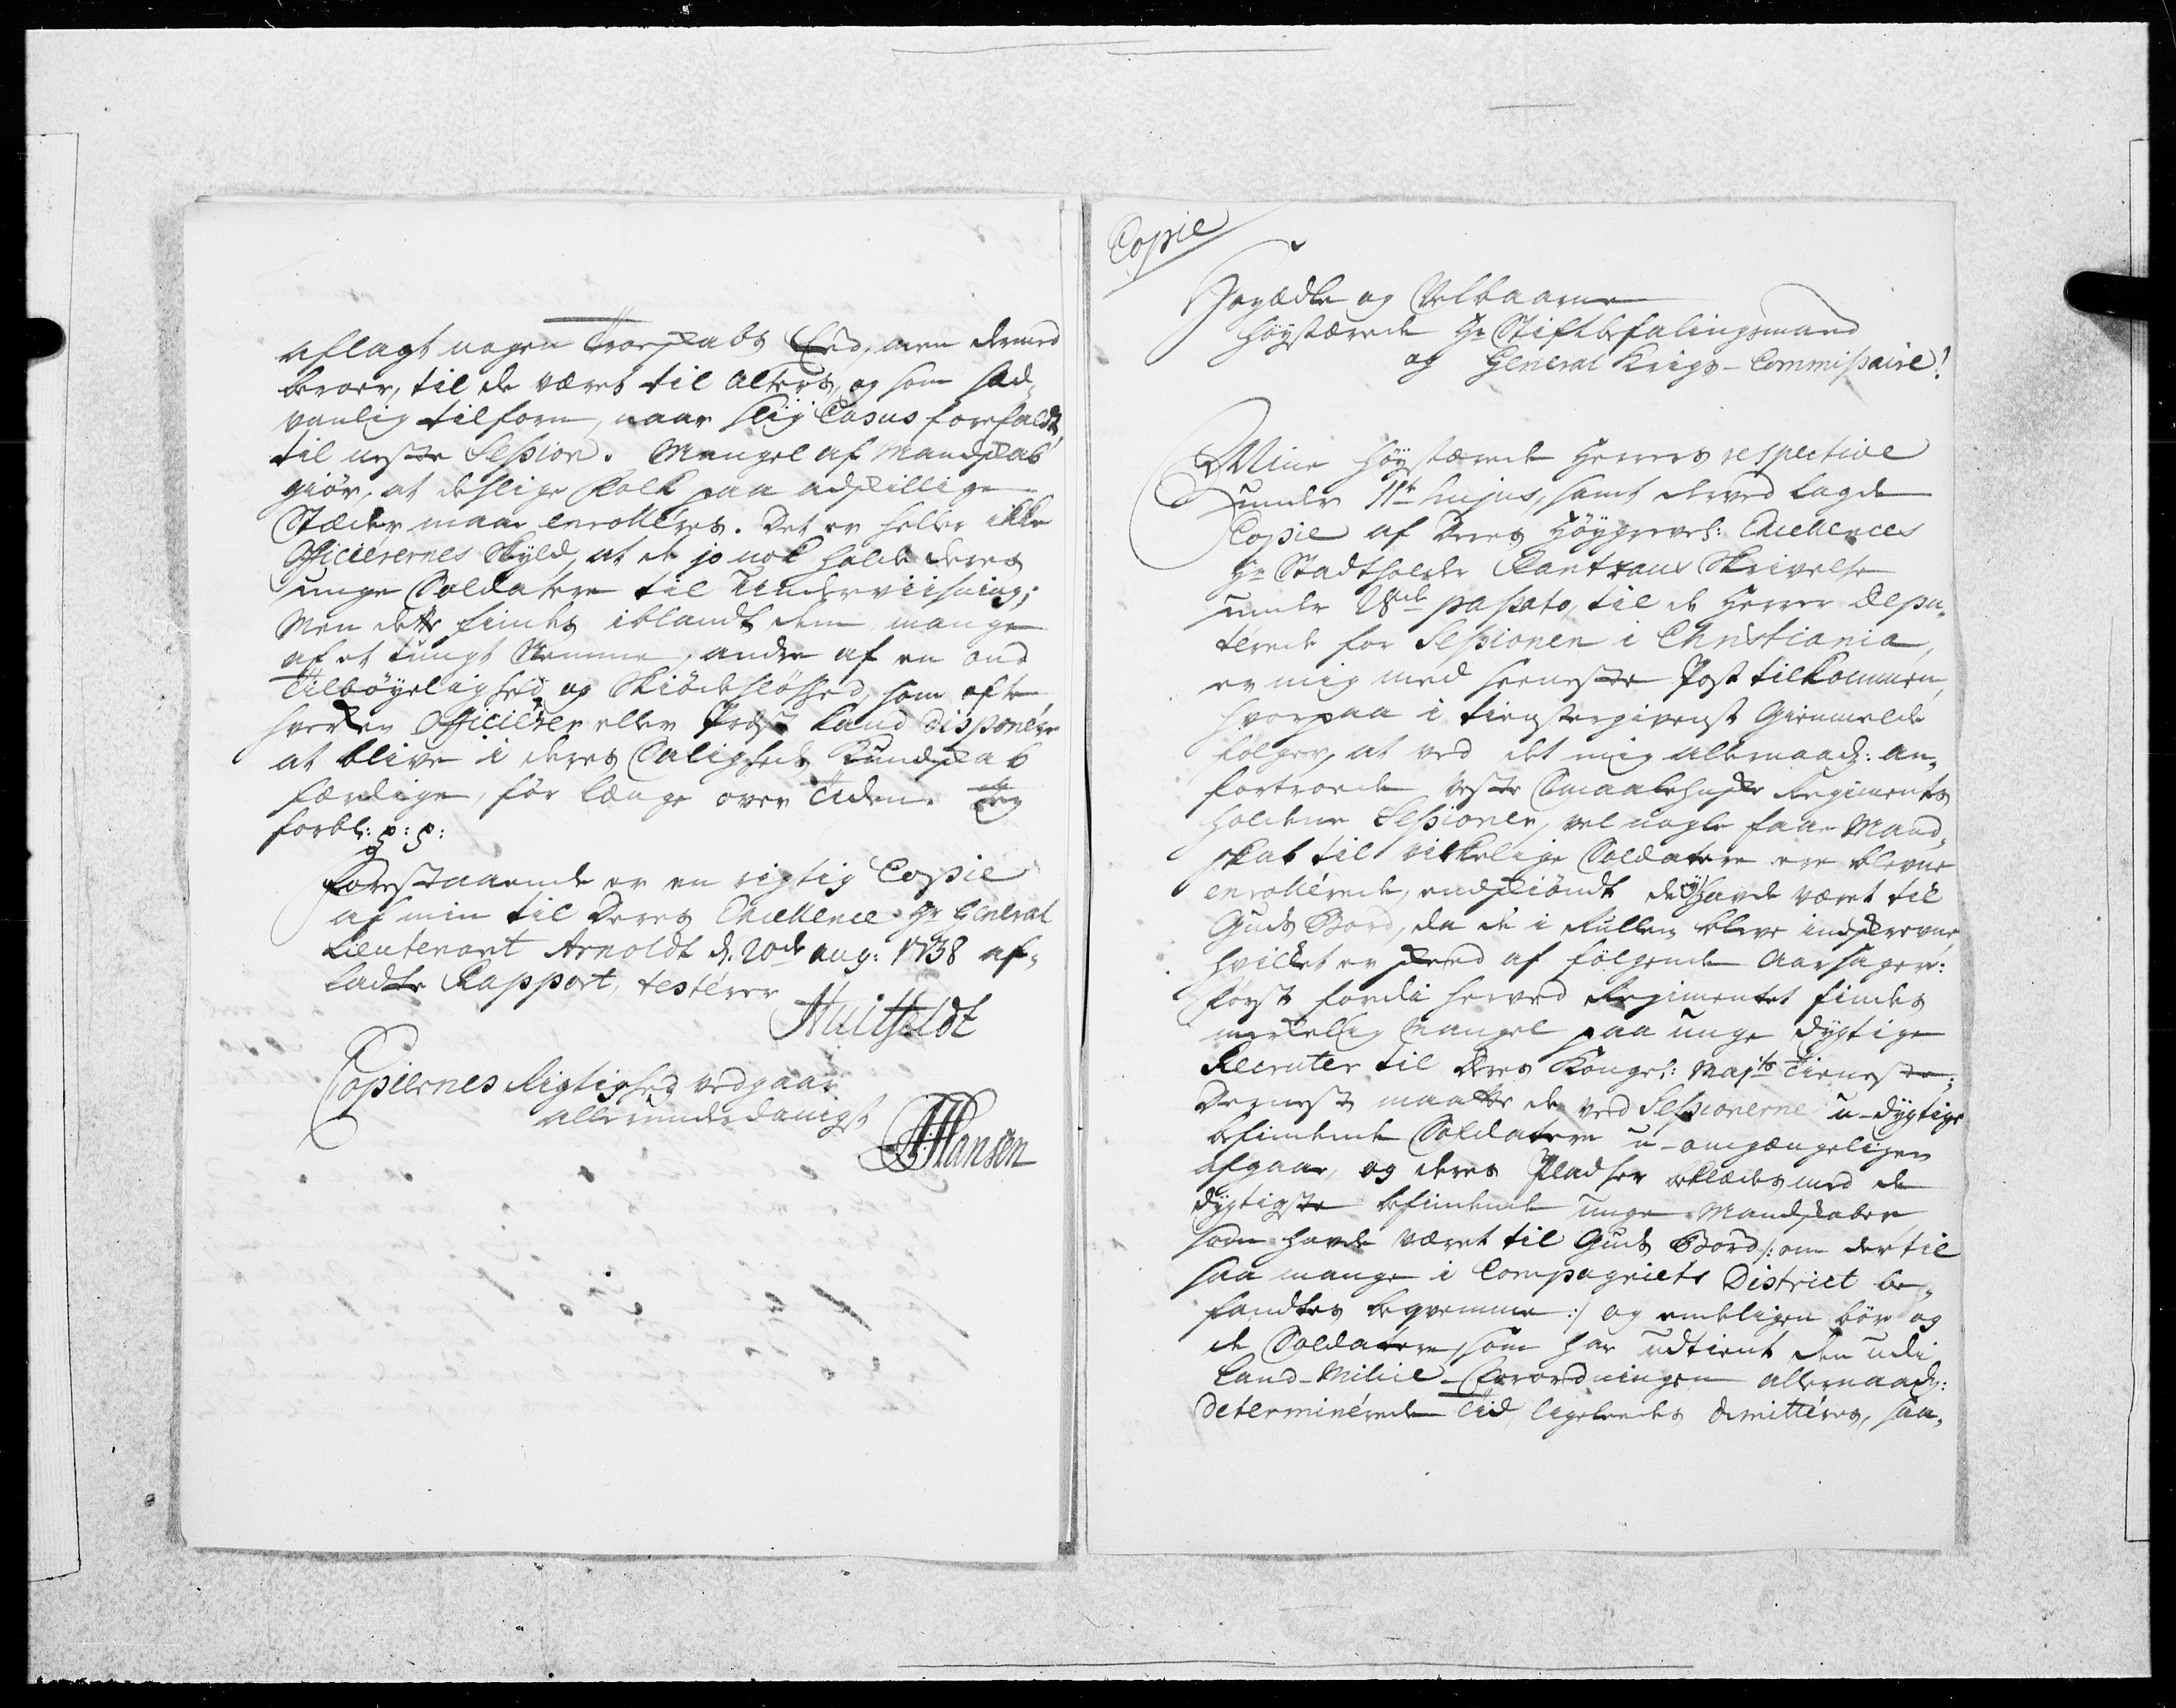 aflagt nogen Troeskabs Eed, men dermed
beroer, til de været til Alters, og som sæd-
vanlig tilforn, naar slig Casus forefaldt,
til neste Session. Mangel af Mandskab
giør, at deslige Folk paa adskillige
Stæder maae enrolleres. Det er heller ikke
Officierernes Skyld, at de jo nok holde deres
unge Soldatere til Underviisning;
Men dette findes iblandt dem, mange
af et tungt Nemme, andre af en ond
Tilbøyelighed og Skiødesløshed, som ofte
hverken Officierer eller Præst kand disponére
at blive i deres Saligheds Kundskab
færdige, før længe over Tiden. Jeg
forbl: p: p:
Forestaaende er en rigtig Copie
af min til Deres Excellence Hr General
Lieutenant Arnoldt d. 20de aug: 1738 af-
ladte Rapport, testérer
Huitfeldt
Copiernes Rigtighed vedgaar
allerunderdanigst
Hansen
Copie
Høyædle og Velbaarne
Høystærede Hr Stiftbefalingsmand
og General Krigs-Commissaire!
Mine høystærede Herrers respective
under 11te hujus, samt derved lagde
Copie af Deres Høygrevel: Excellences
Hr Stadtholder Rantzaus Skrivelse
under 28de passato, til de Herrer Depu-
terede for Sessionen i Christiania,
er mig med seeneste Post tilkommen,
hvorpaa i tienstergivenst Gienmelde
følger, at ved det mig allernaad: an-
fortroede Veste Smaalehnske Regiments
holdene Sessioner, vel nogle faae Mand-
skab til virkelige Soldatere ere blevne
enrollérede, endskiøndt de ey havde været til
Guds Bord, da de i Rullen bleve indskrevne,
hvilket er skeed af følgende Aarsager:
først fordi herved Regimentet findes
merkelig Mangel paa unge dygtige
Recruter til Deres Kongel: Majts Tieneste;
Dernest maatte de ved Sessionerne u-dygtige
befindende Soldatere u-omgængeligen
afgaae, og deres Pladser beklædes med de
dygtigste befindende unge Mandskaber
som havde været til Guds Bord /: om dertil
saa mange i Compagniets District be-
fandtes beqvemme :/ og endeligen bør og
de Soldatere som har udtient den udi
Land-Milice-Forordningen allernaad:
determinérede Tid, ligeleedes dimittéres, saa-